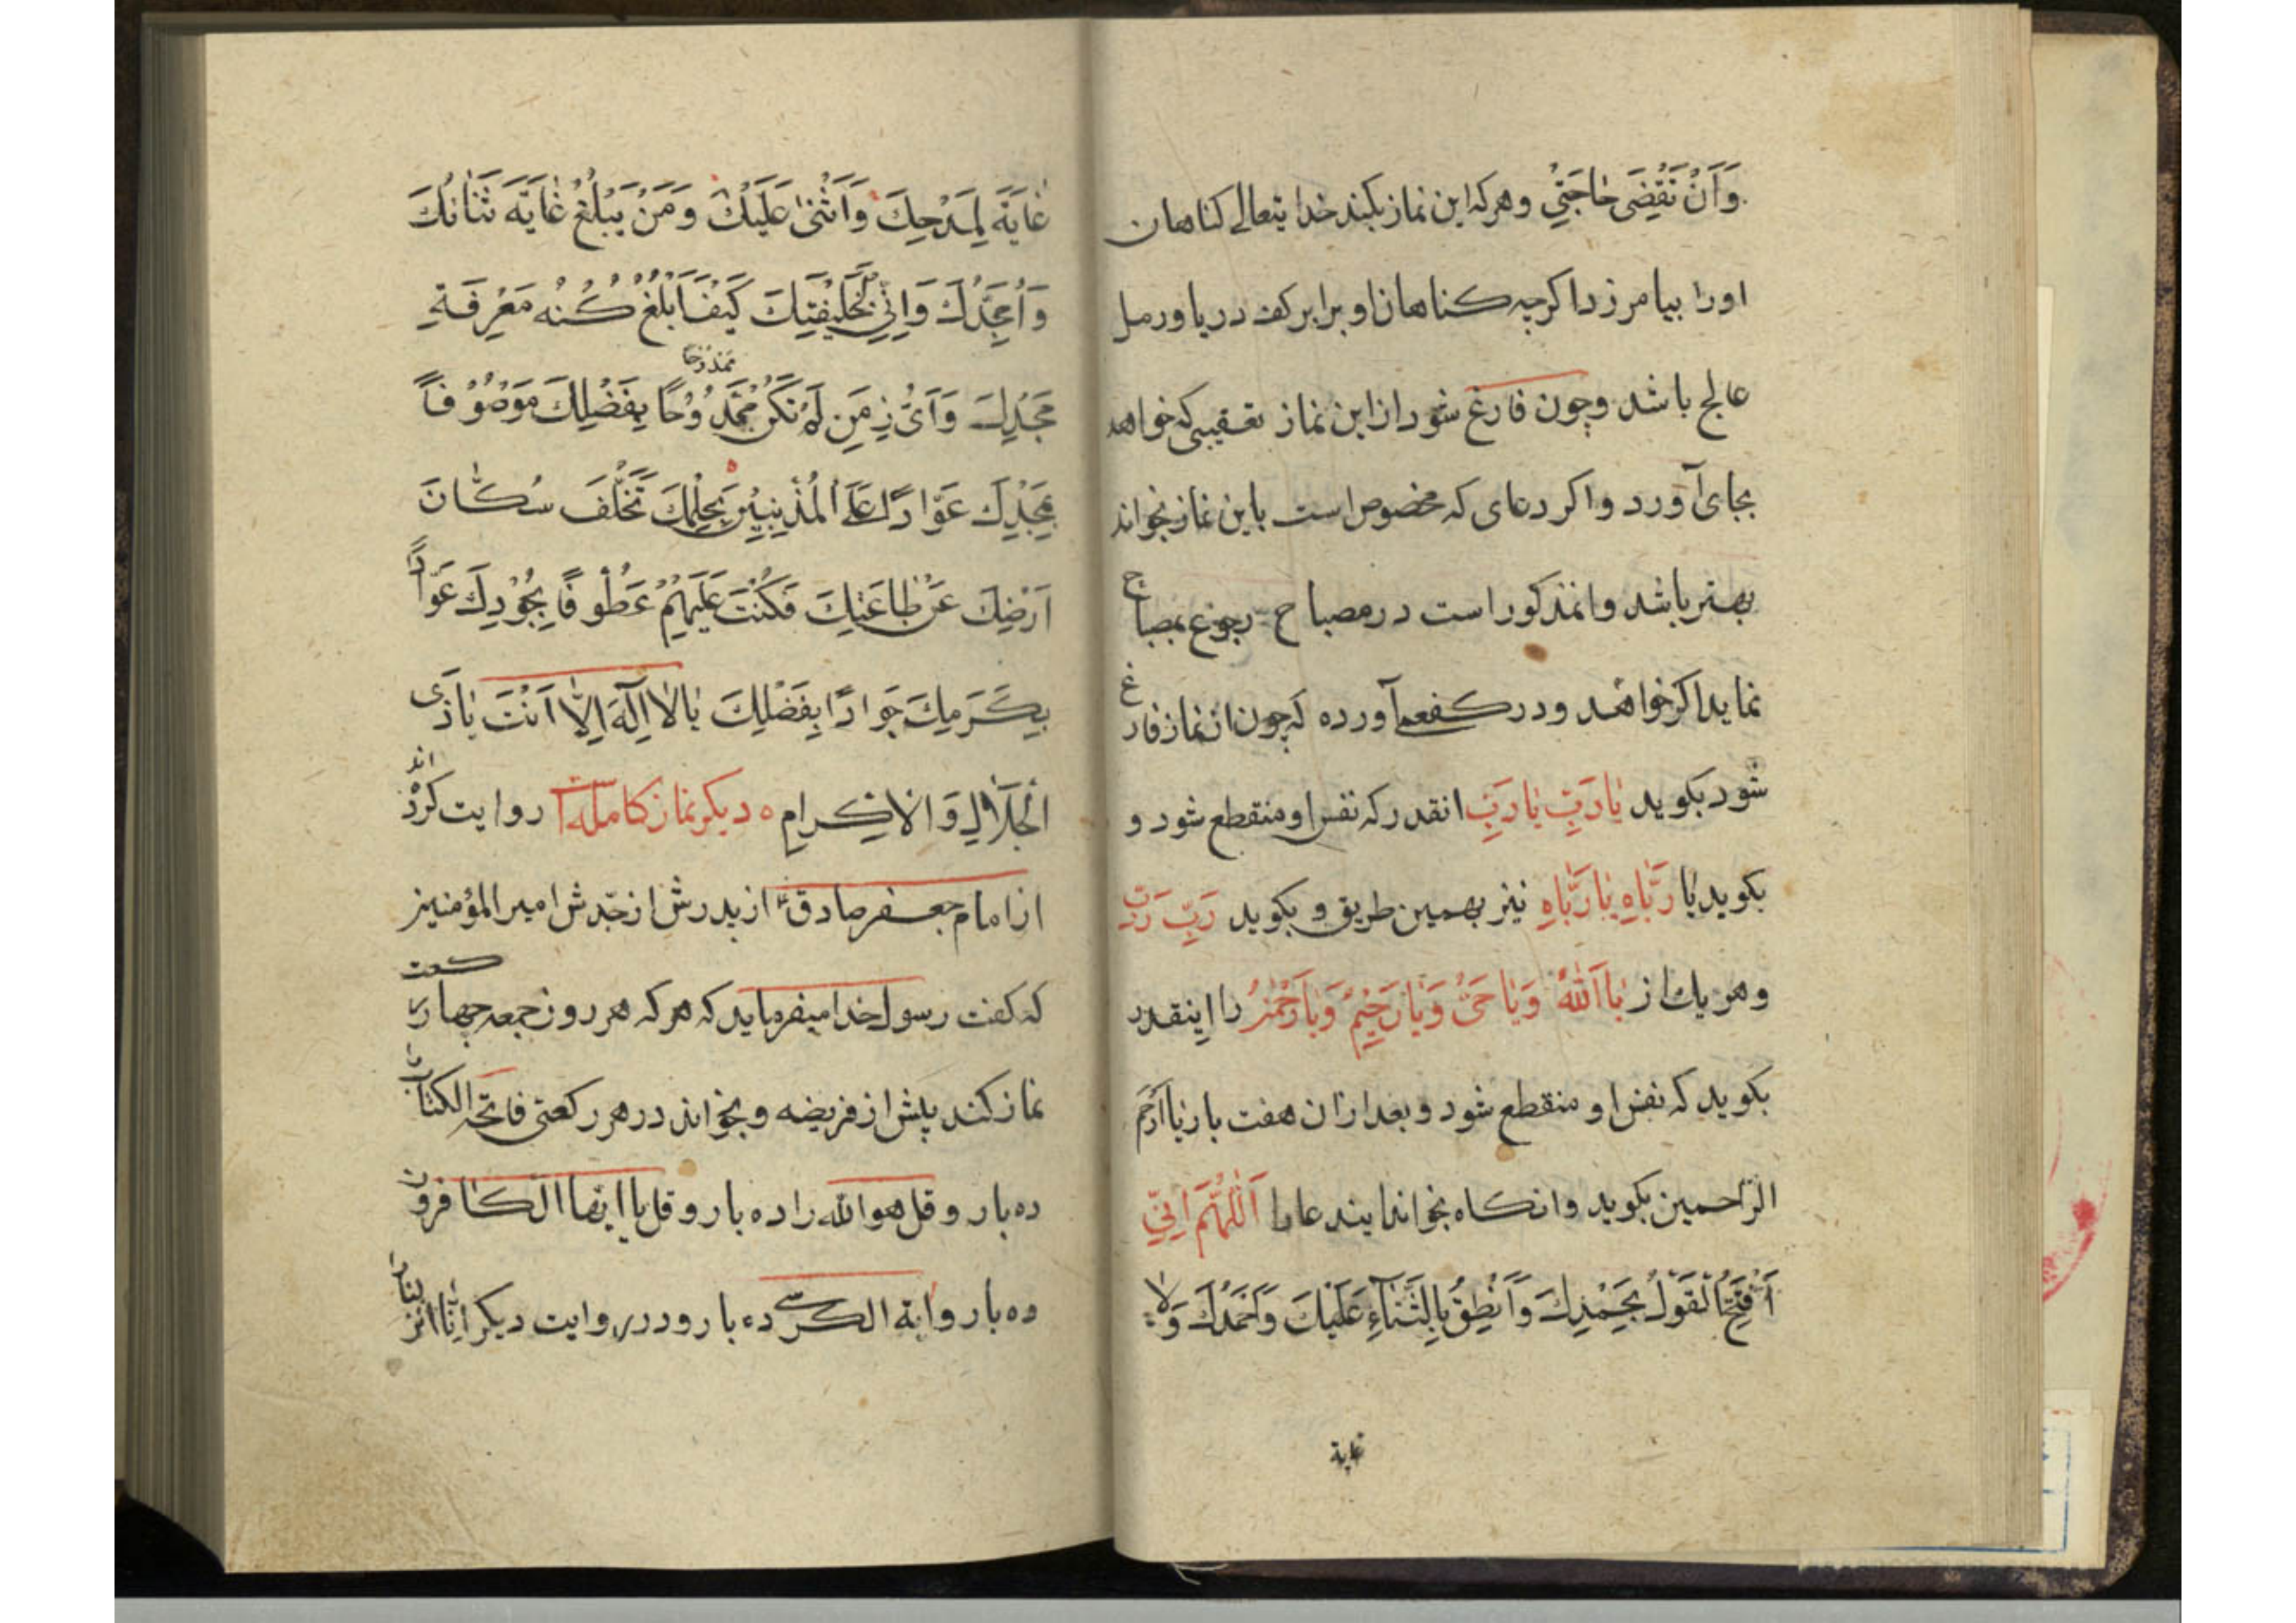 وَاَنْ تَقْضِىَ حٰاجَتِىْ وهركه اين نماز بكند خدايتعالى كناهان
اورا بيامرزد اكرچه كناهان او برابر كف دريا و رمل
عالج باشد وچون فارغ شود از اين نماز تعقيبى كه خواهد
بجاى آورد و اكر دعاى كه مخصوص است باين نماز بخواند
بهتر باشد وانمذكور است در مصباح رجوع بمصباح
نمايد اكر خواهد ودر كفعمى آورده كه چون از نماز فارغ
شود بكويد يٰا رَبِّ يٰا رَبِّ انقدر كه نفس او منقطع شود و
بكويد يٰا رَبّٰاهِ يٰا رَبّٰاهِ نيز بهمين طريق و بكويد رَبِّ رَبِّ
وهر يك از يٰا اَللّٰهُ وَيٰا حَىُّ وَيٰا رَحِيْمُ وَيٰا رَحْمٰنُ را اينقدر
بكويد كه نفس او منقطع شود و بعد ازان هفت بار يا ارحم
الرّاحمين بكويد وانكاه بخواند ايندعا را اَللّٰهُمَّ اِنّىِ
اَفْتَتِحُ الْقَوْلَ بِحَمْدِكَ وَاَنْطِقُ بِالثَّنٰآءِ عَلَيْكَ وَاَحْمَدُكَ وَلاٰ
غاية
غٰايَةَ لِمَدْحِكَ وَاَثْنىٰ عَلَيْكَ وَمَنْ يَبْلُغُ غٰايَةَ ثَنٰائِكَ
وَاُمَجِّدُكَ وَاِنّىِ لِخَليْقَتِكَ كَيْفَ اَبْلُغُ كُنْهَ مَعْرِفَةِ
مَجْدِكَ وَاَىُّ زِمَنِ لَمْ تَكُنْ مَمْدُوْحًا بِفَضْلِكَ مَوْصُوْفًا
ممدوحا
بِمَجْدِكَ عَوّٰادًا عَلَى الْمُذْنِبِيْنَ بِحِلْمِكَ تَخَلَّفَ سُكّٰانَ
اَرْضِكَ عَنْ طٰاعَتِكَ فَكُنْتَ عَلَيْهِمْ عَطُوْفًا بِجُوْدِكَ عَوّٰادًا
بِكَرَمِكَ جَوٰادًا بِفَضْلِكَ يٰا لاٰ اِلٰهَ اِلاّٰ اَنْتَ يٰا ذَى
الْجَلاٰلِ وَالْاِكْرامِ ه ديكر نماز كامله روايت كرده اند
از امام جعفر صادق ع از پدرش از جدّش امير المؤمنين
كه كفت رسول خدا ميفرمايد كه هركه هر روز جمعه چهار ركعت
نماز كند پيش از فريضه وبخواند در هر ركعتى فاتحه الكتاب را
ده بار و قل هو الله را ده بار و قل يا ايها الكافرون
ده بار و اية الكرسى ده بار و در روايت ديكر انّا انزلناه